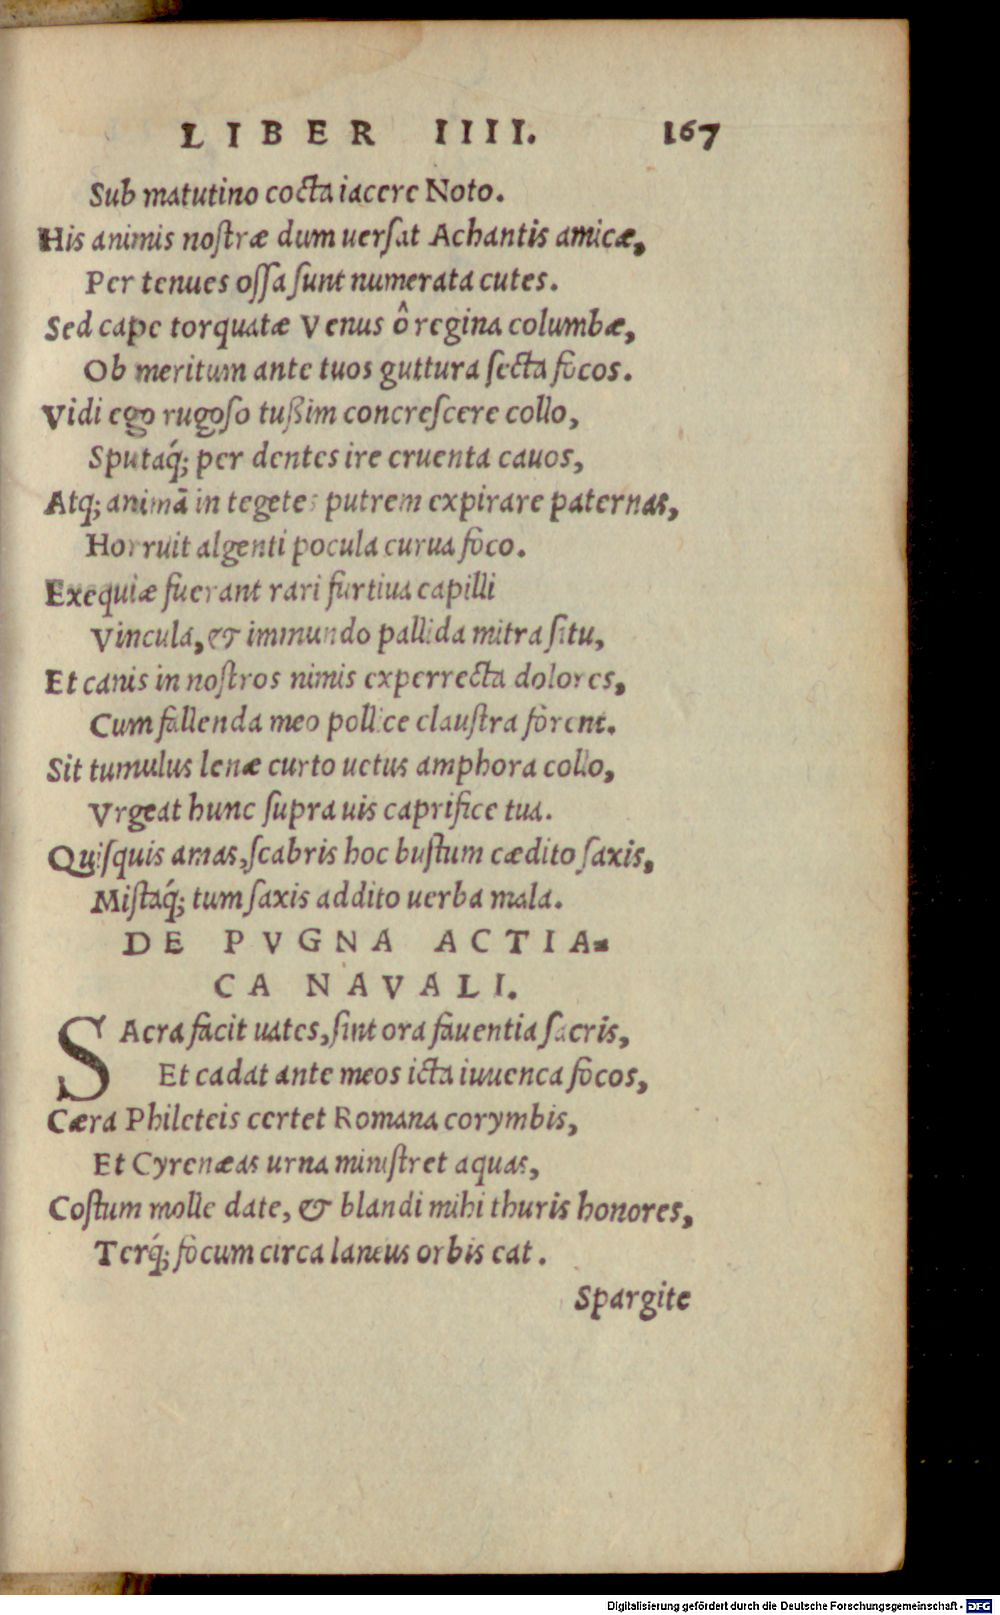 LIBER IIII. 167
Sub matutino cocta iacere Noto.
His animis nostræ dum uersat Achantis amicæ,
Per tenues ossa sunt numerata cutes.
Sed cape torquatæ Venus ô regina columbæ,
Ob meritum ante tuos guttura secta focos.
Vidi ego rugoso tußim concrescere collo,
Sputaq́; per dentes ire cruenta cauos,
Atq; animā in tegetes putrem expirare paternas,
Horruit algenti pocula curua foco.
Exequiæ fuerant rari furtiua capilli
Vincula, & immundo pallida mitra situ,
Et canis in nostros nimis experrecta dolores,
Cum fallenda meo pollice claustra forent.
Sit tumulus lenæ curto uetus amphora collo,
Vrgeat hunc supra uis caprifice tua.
Quisquis amas, scabris hoc bustum cædito saxis,
Mistaq́; tum saxis addito uerba mala.
DE PVGNA ACTIA-
CA NAVALI.
SAcra facit uates, sint ora fauentia sacris,
Et cadat ante meos icta iuuenca focos,
Cæra Phileteis certet Romana corymbis,
Et Cyrenæas urna ministret aquas,
Costum molle date, & blandi mihi thuris honores,
Terq́; focum circa laneus orbis eat.
Spargite
Digitalisierung gefördert durch die Deutsche Forschungsgemeinschaft - DFG